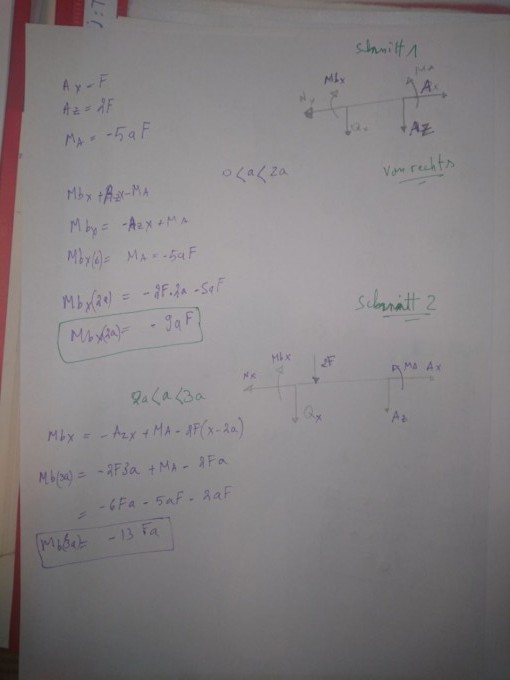 Schnitt 1
Ax = F
Az = 2F
MA = -5aF
Mbx
MA
Ax
Nx
Qx
Az
von rechts
0<a<2a
Mbx + Azx - MA
Mbx = -Azx + MA
Mbx(0) = MA = -5aF
Mbx(2a) = -2F·2a - 5aF
Mbx(2a) = -9aF
Schnitt 2
Mbx
2F
Nx
MA Ax
Qx
Az
2a<a<3a
Mbx = -Azx + MA - 2F(x-2a)
Mb(3a) = -2F3a + MA - 2Fa
= -6Fa - 5aF - 2aF
Mb(3a) = -13 Fa